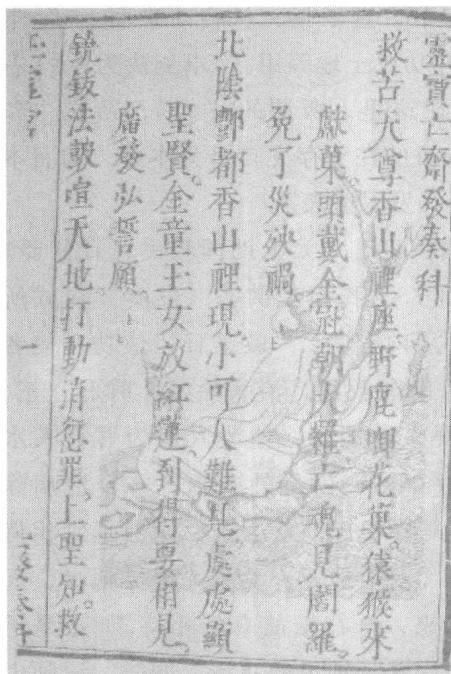 靈寶亡齋發奏科
救苦天尊香山裡座。野鹿啣花菓。猿猴來
獻菓頭戴金冠朝大羅亡魂見閻羅。
免了災殃禍
北陰酆都香山裡現。小可人難見處處顯
聖賢。金童玉女放紅蓮。到得要相見。
廣發弘誓願
鐃鈸法鼓喧天地。打動消愆罪。上聖知。救